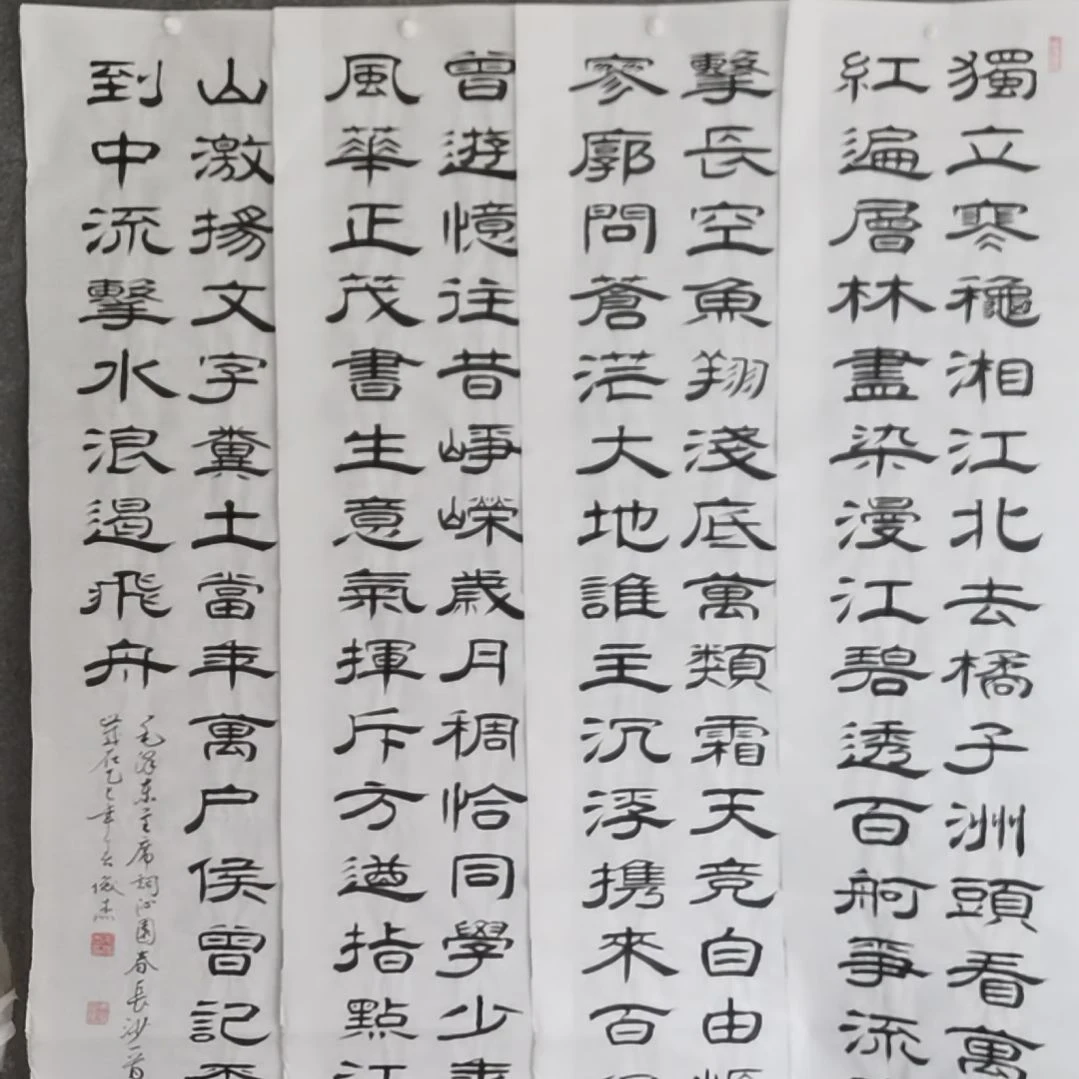 獨立寒穐湘江北去橘子洲頭看萬
紅遍層林盡染漫江碧透百舸爭流
擊長空魚翔淺底萬類霜天竞自由悵
寥廓問蒼茫大地誰主沉浮携來百侣
曾遊憶往昔崢嶸歲月稠恰同學少年
風華正茂書生意氣揮斥方遒指點江
山激揚文字糞土當年萬户侯曾記否
到中流擊水浪遏飛舟
毛澤东主席詞沁園春長沙一首
歲在乙巳年